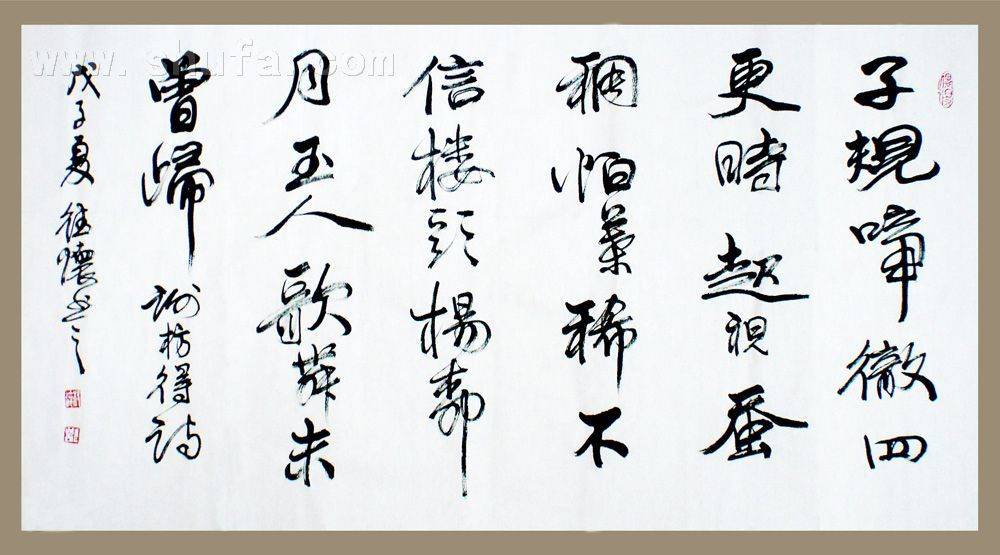 子規啼徹四
更時起視蚕
稠怕葉稀不
信楼頭楊柳
月玉人歌舞未
曾歸 謝枋得詩
戊子夏懷書之
www.shufa.com